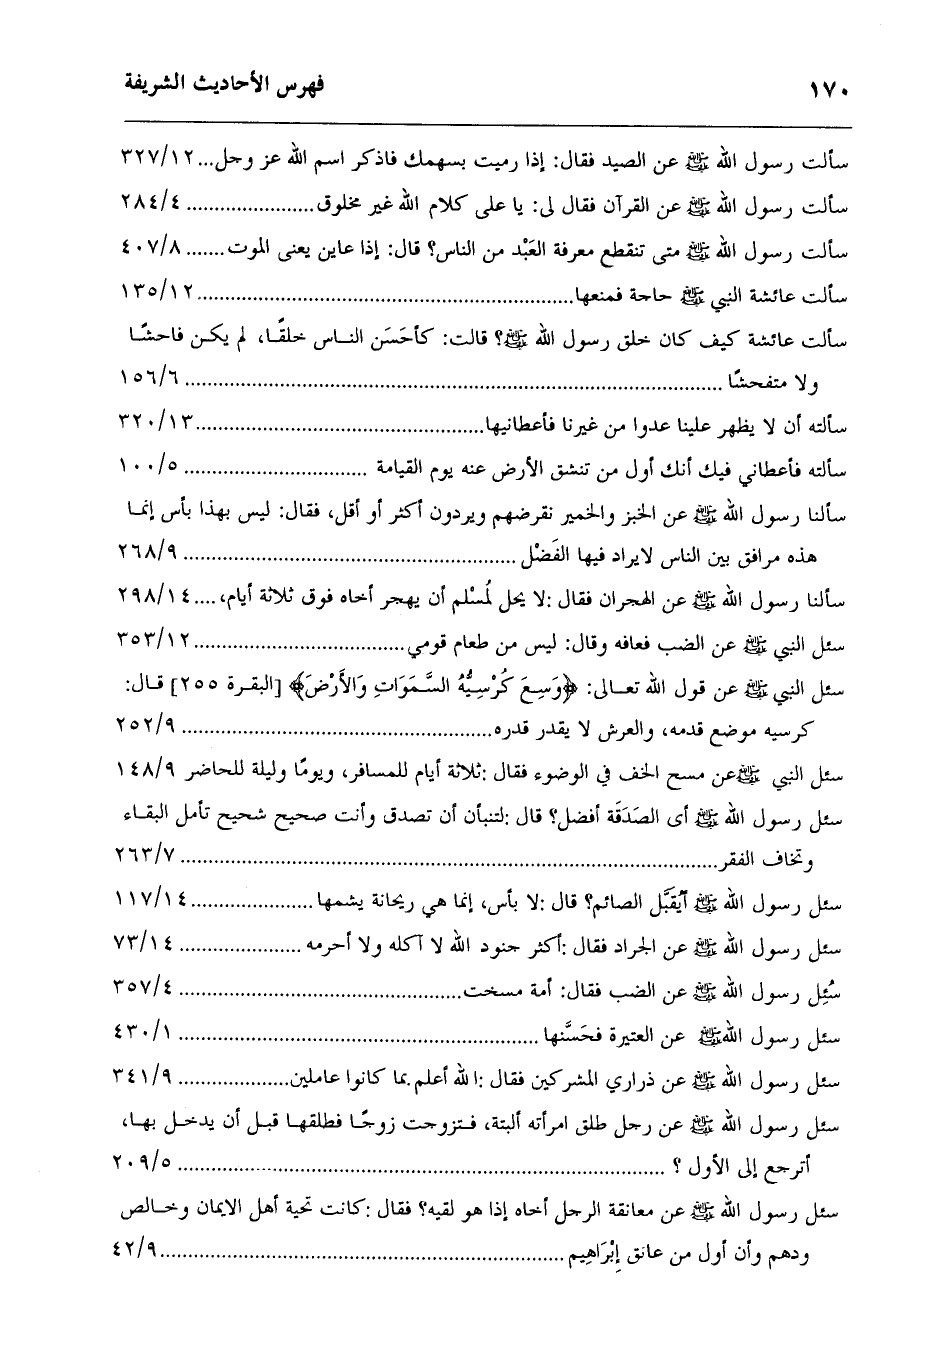 ١٧٠ فهرس الأحاديث الشريفة
سألت رسول الله ﷺ عن الصيد فقال: إذا رميت بسهمك فاذكر اسم الله عز وحل... ٣٢٧/١٢
سألت رسول الله ﷺ عن القرآن فقال لى: يا على كلام الله غير مخلوق ...................... ٢٨٤/٤
سألت رسول الله ﷺ متى تنقطع معرفة العَبْد من الناس؟ قال: إذا عاين يعنى الموت ....... ٤٠٧/٨
سألت عائشة النبي ﷺ حاحة فمنعها.............................................................. ١٣٥/١٢
سألت عائشة كيف كان خلق رسول الله ﷺ؟ قالت: كأحَسَن النـاس خلقًـا، لم يكـن فاحشًـا
ولا متفحشًا ........................................................................................ ١٥٦/٦
سألته أن لا يظهر علينا عدوا من غيرنا فأعطانيها................................................ ٣٢٠/١٣
سألته فأعطاني فيك أنك أول من تنشق الأرض عنه يوم القيامة .............................. ١٠٠/٥
سألنا رسول الله ﷺ عن الخبز والخمير نقرضهم ويردون أكثر أو أقل، فقال: ليس بهذا بأس إنمـا
هذه مرافق بين الناس لايراد فيها الفَضْل ....................................................... ٢٦٨/٩
سألنا رسول الله ﷺ عن الهجران فقال :لا يحل لمُسْلم أن يهجر أخاه فوق ثلاثة أيام،.... ٢٩٨/١٤
سئل النبي ﷺ عن الضب فعافه وقال: ليس من طعام قومي................................... ٣٥٣/١٢
سئل النبي ﷺ عن قول الله تعـالى: ﴿وَسِعَ كُرْسِيُّهُ السَّـمَوَاتِ وَالأَرْضَ﴾ [البقـرة ٢٥٥] قـال:
كرسيه موضع قدمه، والعرش لا يقدر قدره................................................... ٢٥٢/٩
سئل النبي ﷺعن مسح الخف في الوضوء فقال :ثلاثة أيام للمسافر، ويومًا وليلة للحاضر ١٤٨/٩
سئل رسول الله ﷺ أى الصَدَقَة أفضل؟ قال :لتنبأن أن تصدق وأنت صحيح شحيح تأمل البقـاء
وتخاف الفقر........................................................................................ ٢٦٣/٧
سئل رسول الله ﷺ أَيُقَبَّل الصائم؟ قال :لا بأس، إنما هي ريحانة يشمها.................... ١١٧/١٤
سئل رسول الله ﷺ عن الجراد فقال :أكثر جنود الله لا آكله ولا أحرمه .................... ٧٣/١٤
سُئِل رسول الله ﷺ عن الضب فقال: أمة مسخت............................................... ٣٥٧/٤
سئل رسول اللهﷺ عن العتيرة فحَسَّنها ........................................................... ٤٣٠/١
سئل رسول الله ﷺ عن ذراري المشركين فقال :الله أعلم بما كانوا عاملين.................. ٣٤١/٩
سئل رسول الله ﷺ عن رجل طلق امرأته ألبتة، فـتزوجت زوجًـا فطلقهـا قبـل أن يدخـل بهـا،
أترجع إلى الأول ؟ ................................................................................ ٢٠٩/٥
سئل رسول الله ﷺ عن معانقة الرجل أخاه إذا هو لقيه؟ فقال :كانت تحية أهل الايمان وخـالص
ودهم وأن أول من عانق إبْرَاهِيم.................................................................. ٤٢/٩